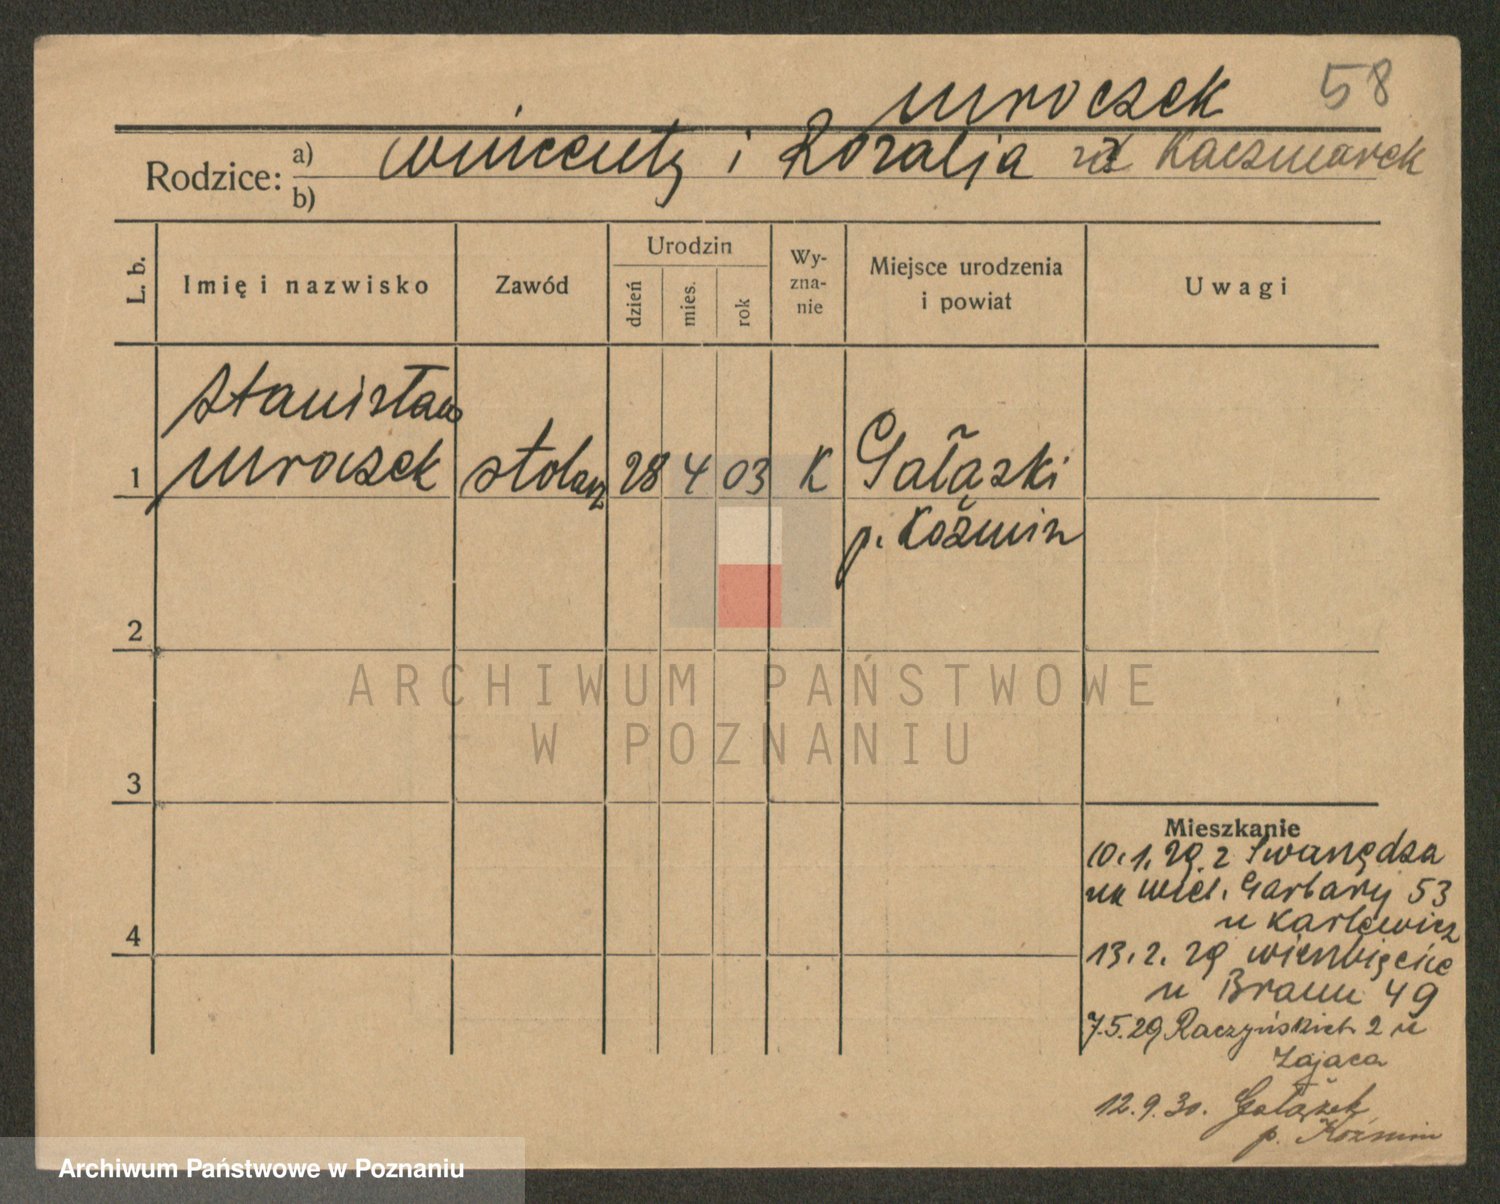 Mroczek 58
Rodzice: a) Wincenty i Rozalja zd Kaczmarek
b)
L. b.
Imię i nazwisko
Zawód
Urodzin
dzień
mies.
rok
Wy-
zna-
nie
Miejsce urodzenia
i powiat
Uwagi
Stanisław
1 Mroczek stolarz 28 4 03 K Gałązki
p. Koźmin
2
3
4
ARCHIWUM PAŃSTWOWE
W POZNANIU
Mieszkanie
10.1.29 z Swarzędza
na Wiel. Garbary 53
u Karlewicz
13.2.29 Wierzbięcice
u Braun 49
7.5.29 Raczyńskich 2 u
Zająca
12.9.30. Gałązek
p. Koźmin
Archiwum Państwowe w Poznaniu